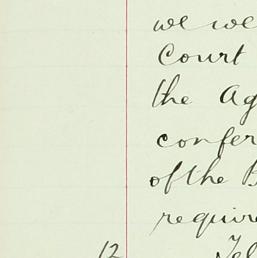 we we
Court
the Ag
confer
of the B
require
12 Tel